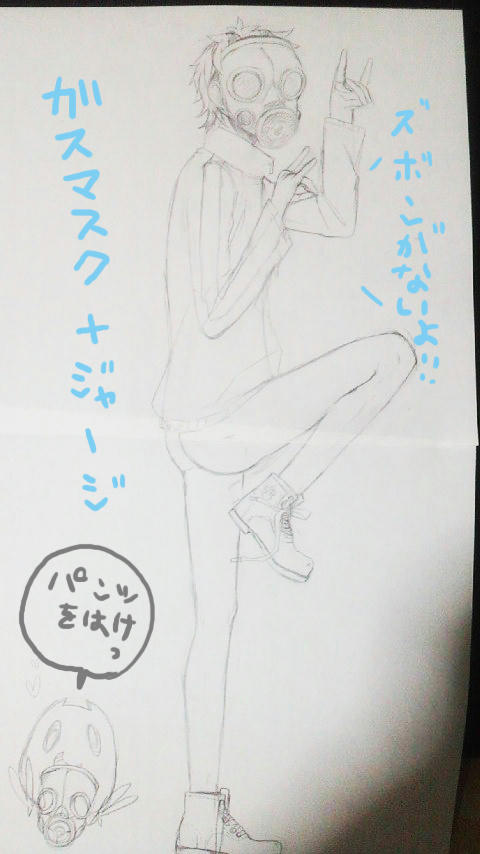 ガスマスク+ジャージ
ズボンがないよ!!
パンツ
をはけ
っ